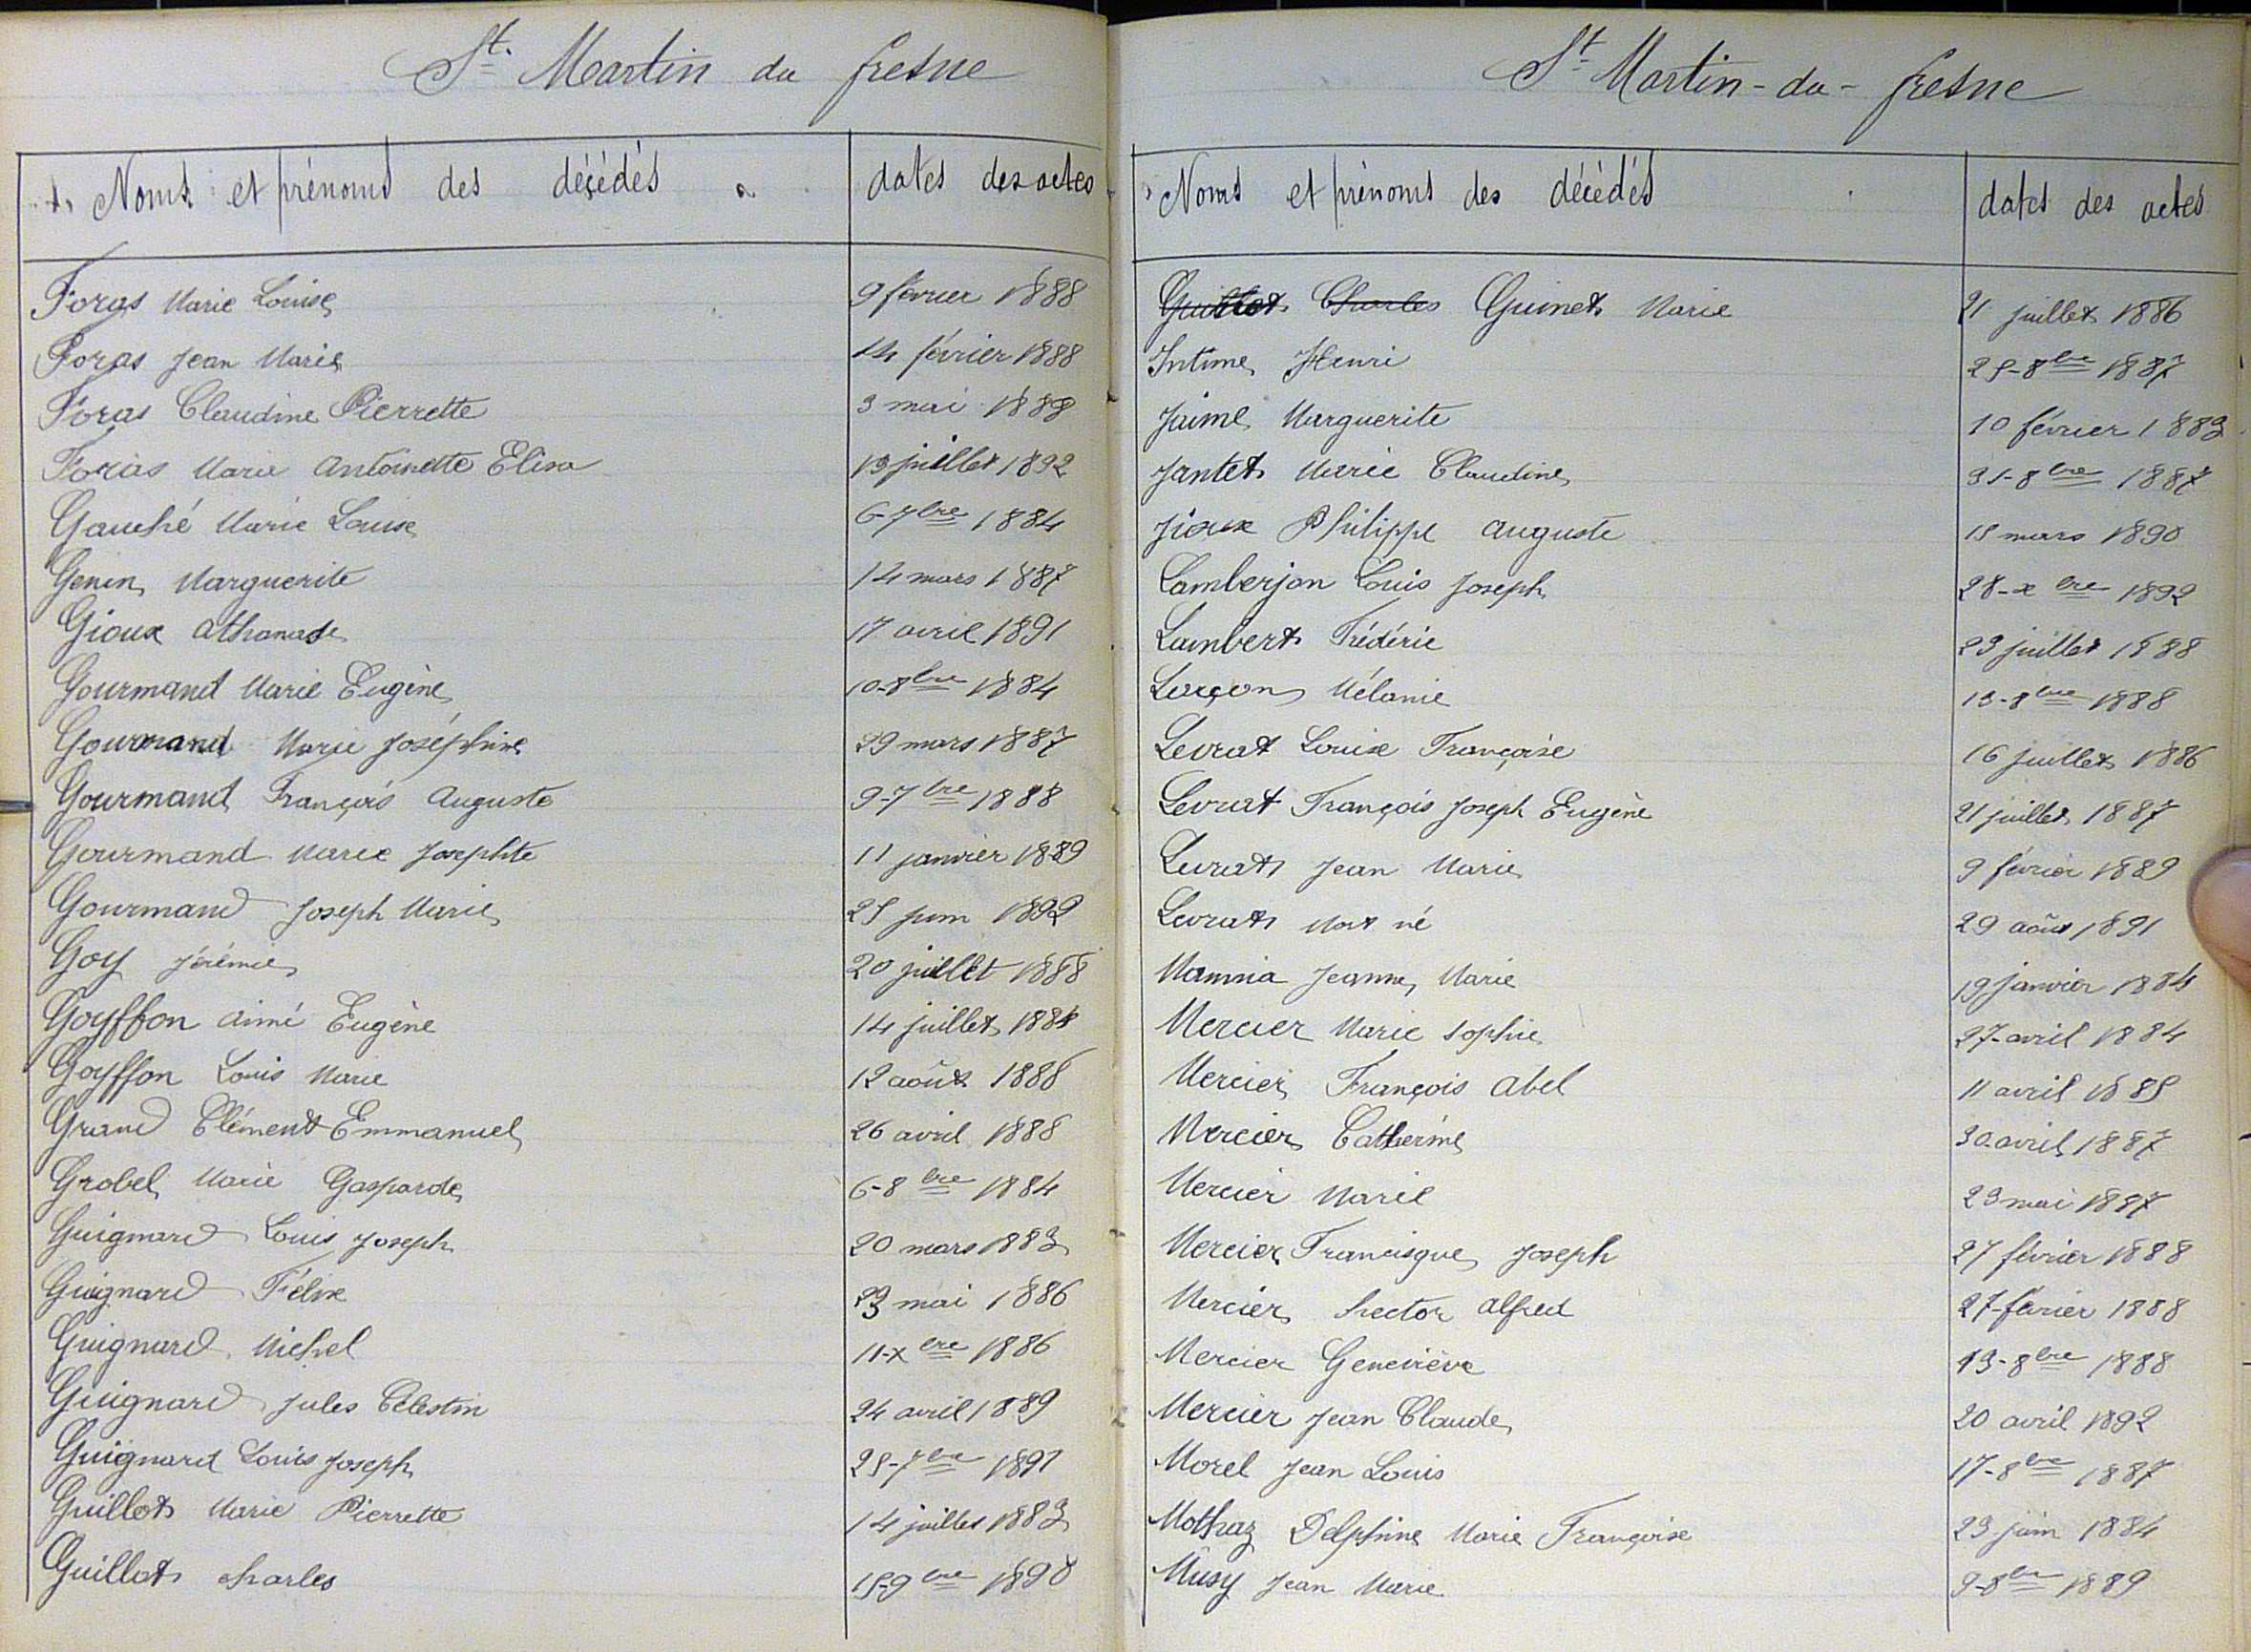 St. Martin du fresne
Noms et prénoms des décédés
dates des actes
Foras Marie Louise 9 février 1888
Foras Jean Marie 14 février 1888
Foras Claudine Pierrette 3 mai 1888
Foras Marie Antoinette Elisa 13 juillet 1892
Gauché Marie Louise 6-7bre 1884
Genin Marguerite 14 mars 1887
Gioux Athanase 17 avril 1891
Gourmand Marie Eugène 10-8bre 1884
Gourmand Marie Joséphine 29 mars 1887
Gourmand François Auguste 9-7bre 1888
Gourmand Marie Josephte 11 janvier 1889
Gourmand Joseph Marie 25 juin 1892
Goy Jérémie 20 juillet 1888
Goyffon Aimé Eugène 14 juillet
Goyffon Louis Marie 12 août 1886
Grand Clément Emmanuel 26 avril 1888
Grobel Marie Gasparde 6-8bre 1884
Guignard Louis Joseph 20 mars 1883
Guignard Félix mai 1886
Guignard Michel 11-Xbre 1886
Guignard Jules Célestin 24 avril 1889
Guignard Louis Joseph 25-7bre 1891
Guillot Marie Pierrette 14 juillet 1883
Guillot charles 15-9bre 1890
St Martin-du-fresne
Noms et prénoms des décédés
dates des actes
Guillot Charles Guinet Marie 21 juillet 1886
Intime Henri 25-8bre 1887
Jaime Marguerite 10 février 1883
Jantet Marie Claudine 31-8bre 1887
Jioux Philippe Auguste 15 mars 1890
Lamberjon Louis Joseph 28-xbre 1892
Lambert Frédéric 23 juillet 1888
Lorçon Mélanie 13-8bre 1888
Levrat Louise Françoise 16 juillet 1886
Levrat François Joseph Eugène 21 juillet 1887
Levrat Jean Marie 9 février 1889
Levrat Mort né 29 août 1891
Mamnia Jeanne Marie 19 janvier 1884
Mercier Marie Sophie 27-avril 1884
Mercier François Abel 11 avril 1885
Mercier Catherine 30 avril 1887
Mercier Marie 23 mai 1887
Mercier Francisque Joseph 27 février 1888
Mercier hector Alfred 27-février 1888
Mercier Geneviève 13-8bre 1888
Mercier Jean Claude 20 avril 1892
Morel Jean Louis 17-8bre 1887
Mothaz Delphine Marie Françoise 23 juin 1884
Musy Jean Marie 9-8bre 1889